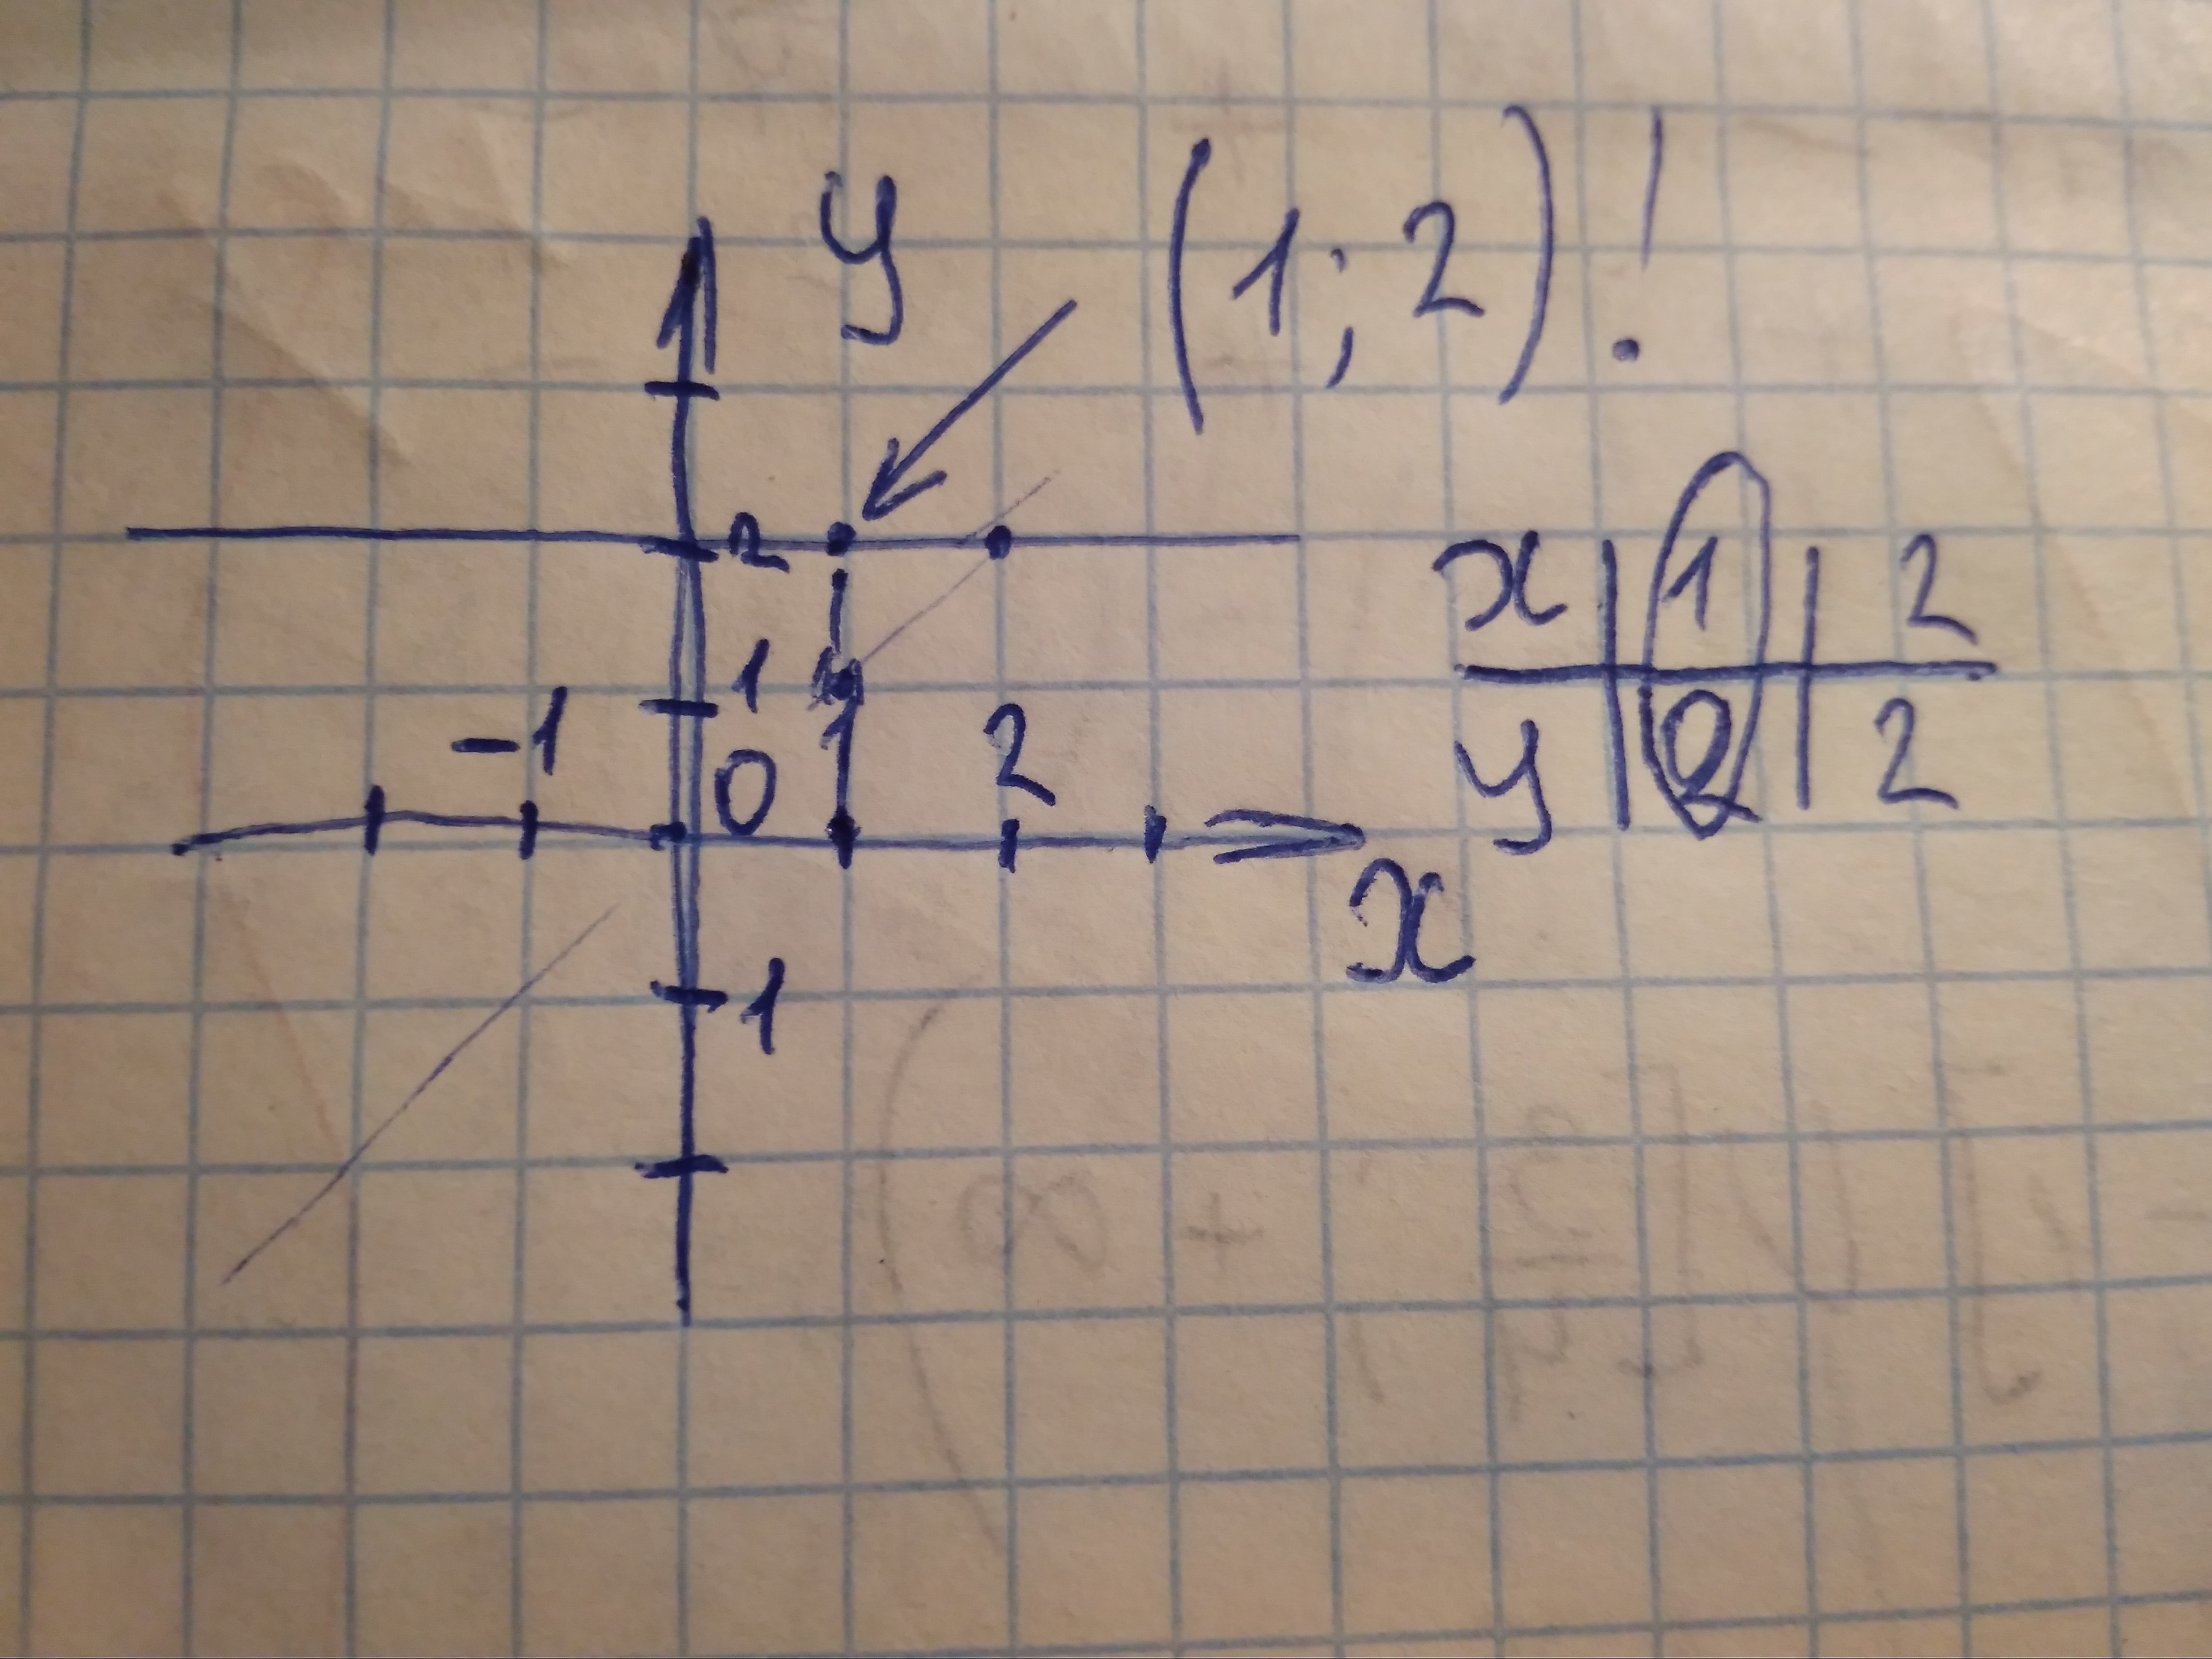 y (1; 2)!
2
x | 1 | 2
1
y | 2 | 2
-1 0 1 2
x
-1